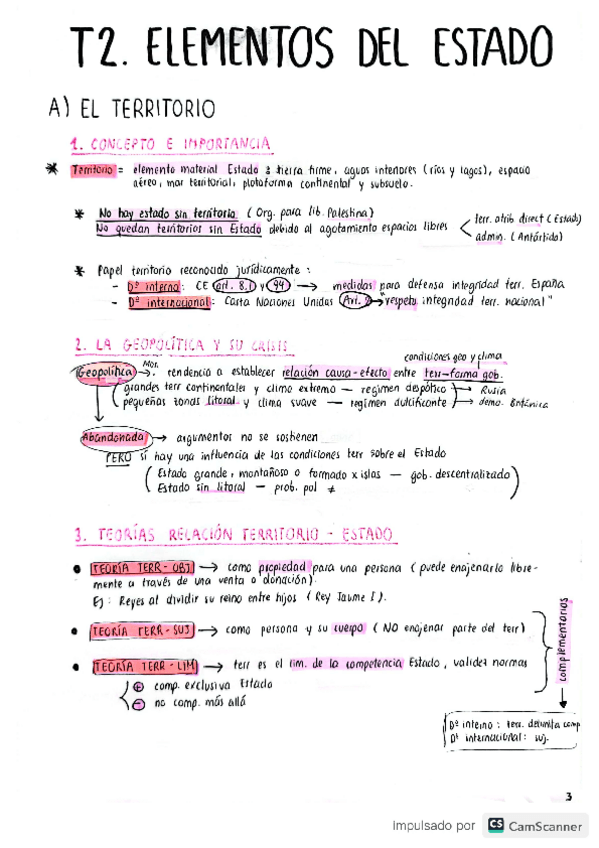 T2. ELEMENTOS DEL ESTADO
A) EL TERRITORIO
1. CONCEPTO E IMPORTANCIA
* Territorio = elemento material Estado : tierra firme, aguas interiores (ríos y lagos), espacio
aéreo, mar territorial, plataforma continental y subsuelo.
* No hay estado sin territorio (Org. para lib. Palestina)
No quedan territorios sin Estado debido al agotamiento espacios libres
terr. atrib direct (Estado)
admin. (Antártida)
* Papel territorio reconocido jurídicamente :
- Dº interno : CE art. 8.1 y 94 → medidas para defensa integridad terr. España
- Dº internacional : Carta Naciones Unidas Art. 2 → "respeta integridad terr. nacional"
2. LA GEOPOLÍTICA Y SU CRISIS
condiciones geo y clima
Geopolítica → : tendencia a establecer relación causa-efecto entre terr-forma gob.
grandes terr continentales y clima extremo — regimen despótico → Rusia
pequeñas zonas litoral y clima suave — regimen dulcificante → demo. Británica
Abandonada → argumentos no se sostienen
PERO sí hay una influencia de las condiciones terr sobre el Estado
(Estado grande, montañoso o formado x islas — gob. descentralizado
Estado sin litoral — prob. pol ≠)
3. TEORÍAS RELACIÓN TERRITORIO - ESTADO
• TEORÍA TERR - OBJ → como propiedad para una persona (puede enajenarlo libre-
mente a través de una venta o donación).
Ej : Reyes al dividir su reino entre hijos (Rey Jaume I).
• TEORÍA TERR - SUJ → como persona y su cuerpo (NO enajenar parte del terr)
• TEORÍA TERR - LIM → terr es el lim. de la competencia Estado, validez normas
+ comp. exclusiva Estado
- no comp. más allá
complementarios
Dº interno : terr. delimita comp.
Dº internacional : suj.
3
Impulsado por CS CamScanner